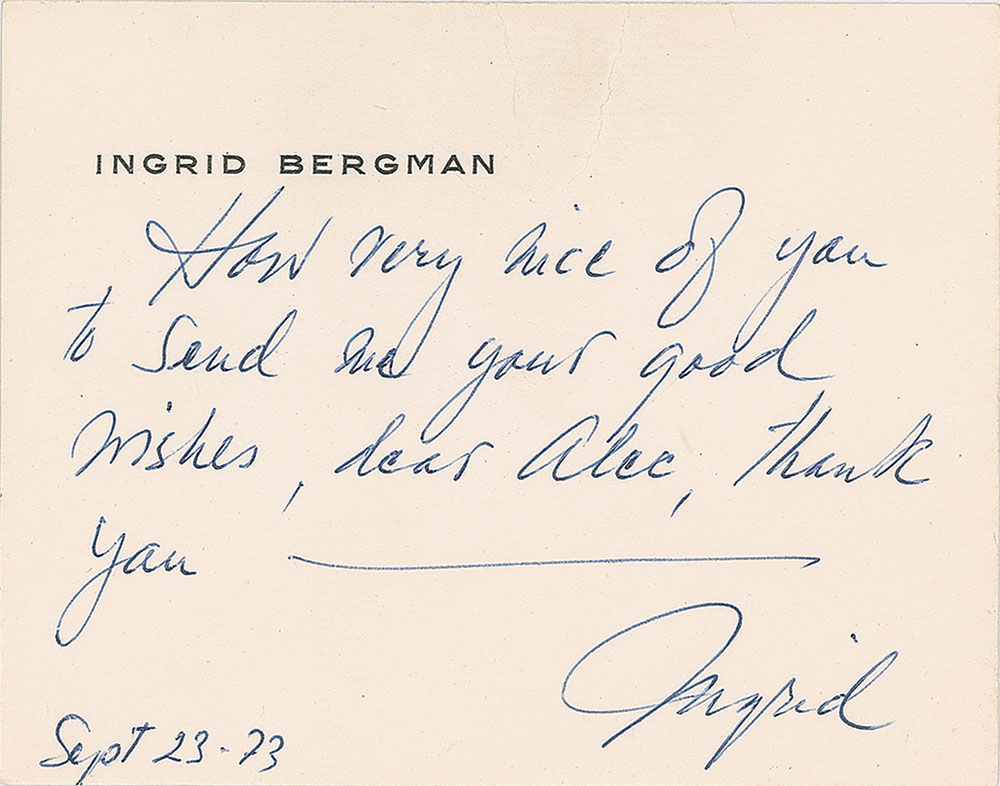 INGRID BERGMAN
How very nice of you
to send me your good
wishes, dear Alec, thank
you —
Ingrid
Sept 23-73